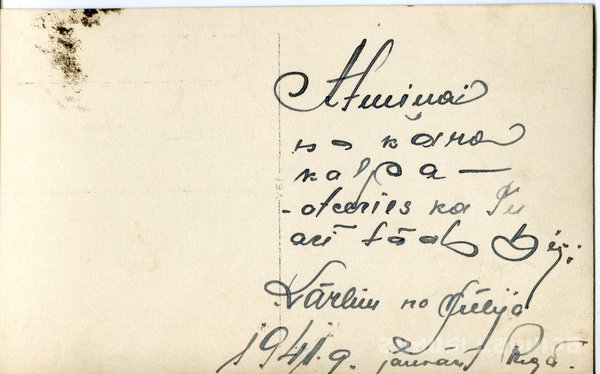 Atmiņai
no kāra
kalpa —
- atceries ka Tu
arī tāds biji
Kārlim no Jūlija
1941. g. Janvārī Rīgā.